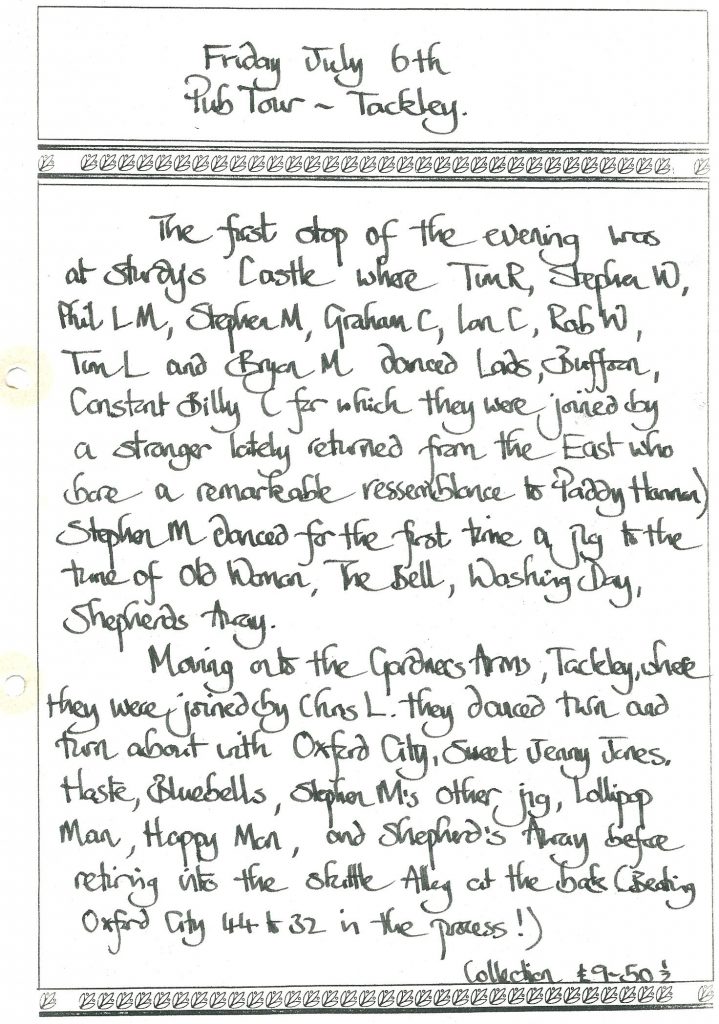 Friday July 6th
Pub Tour ~ Tackley.
The first stop of the evening was
at Sturdys Castle where Tim R, Stephen W,
Phil L M, Stephen M, Graham C, Ian C, Rob W,
Tim L and Bryan M danced Lads, Buffoon,
Constant Billy ( for which they were joined by
a stranger lately returned from the East who
bore a remarkable ressemblance to Paddy Hannan)
Stephen M danced for the first time a jig to the
tune of Old Woman, The Bell, Washing Day,
Shepherds Array.
Moving onto the Gardners Arms, Tackley, where
they were joined by Chris L. they danced turn and
turn about with Oxford City, Sweet Jenny Jones,
Haste, Bluebells, Stephen M's other jig, Lollipop
Man, Happy Man, and Shepherd's Array before
retiring into the skittle Alley at the back (Beating
Oxford City 44 to 32 in the process!)
Collection £9-50½